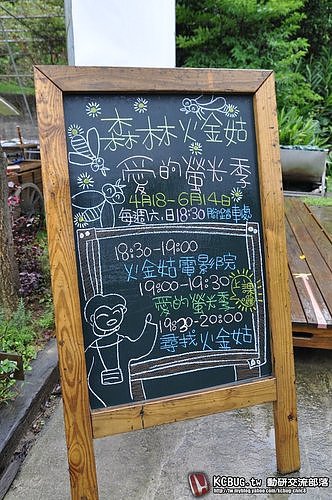 森林火金姑
愛的螢光季
4月18-6月14日
每週六.日18:30腳踏車處
18:30-19:00
火金姑電影院
19:00-19:30
愛的螢光季
19:30-20:00
尋找火金姑
KCBUG.tw 動研交流部落
http://tw.myblog.yahoo.com/kcbug_cnic8